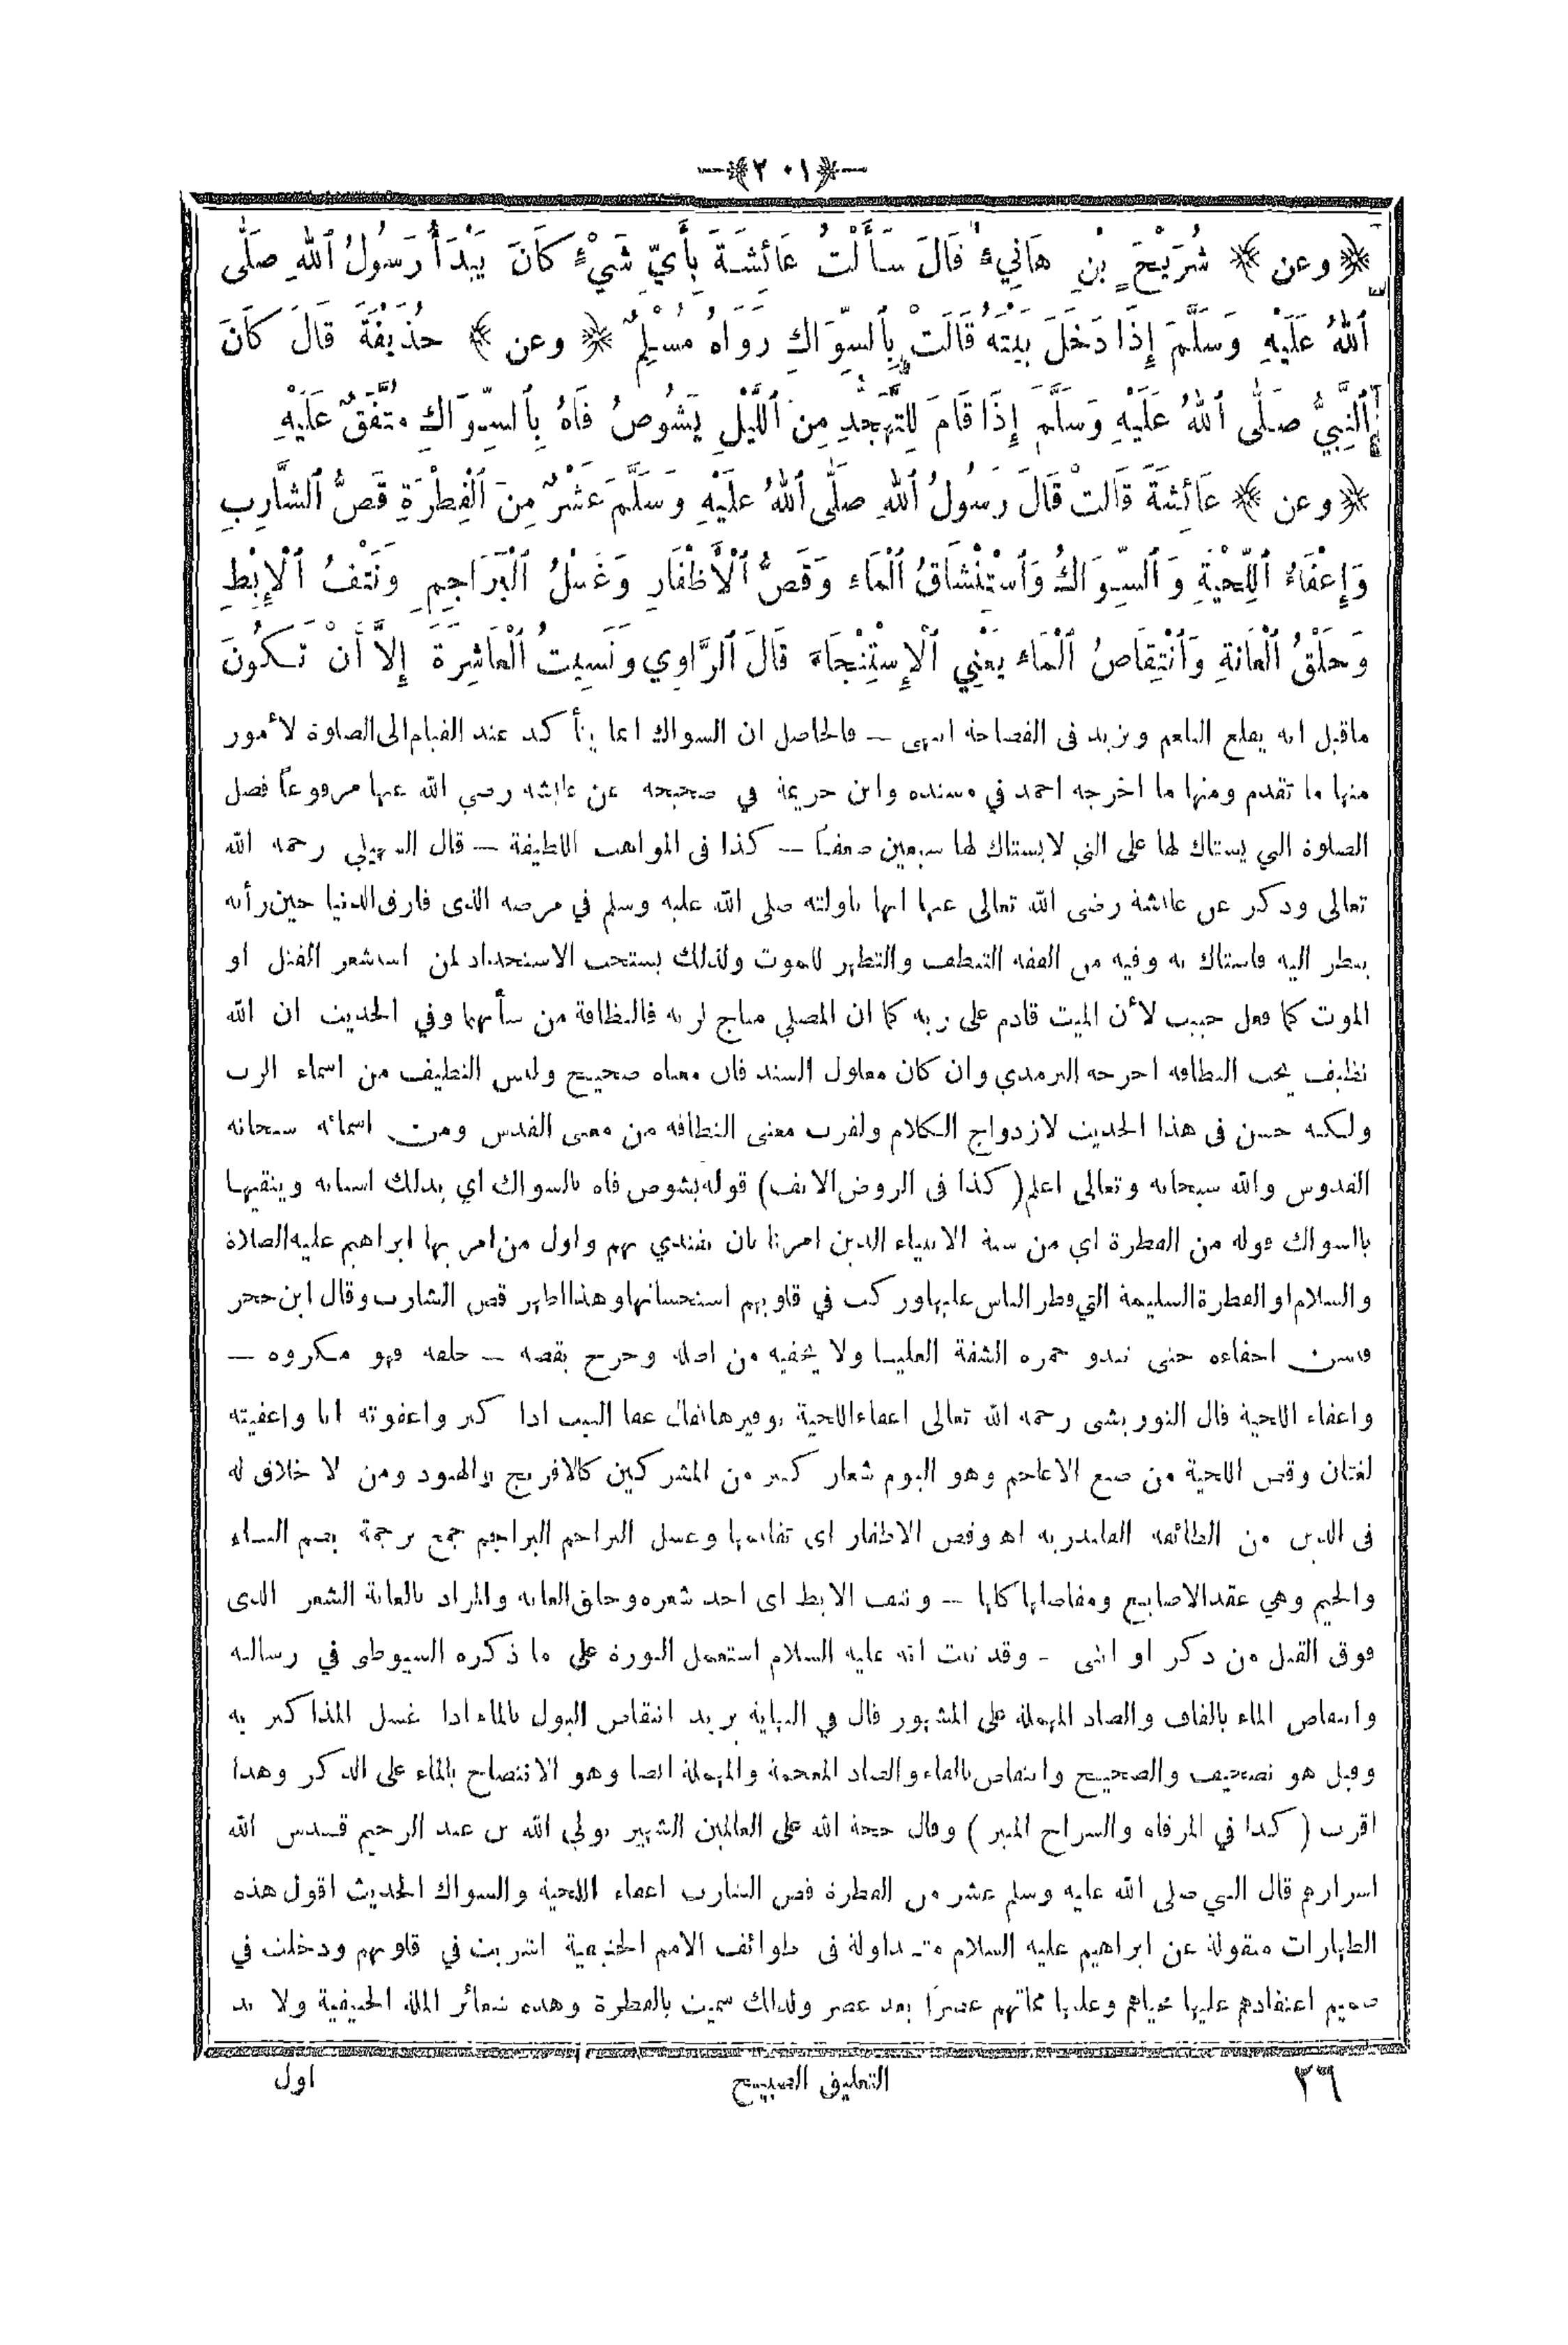 ﴿٢٠١﴾
﴿ وعن ﴾ شُرَيْحِ بْنِ هَانِيءٍ قَالَ سَأَلْتُ عَائِشَةَ بِأَيِّ شَيْءٍ كَانَ يَبْدَأُ رَسُولُ ٱللهِ صَلَّى
ٱللهُ عَلَيْهِ وَسَلَّمَ إِذَا دَخَلَ بَيْتَهُ قَالَتْ بِٱلسِّوَاكِ رَوَاهُ مُسْلِمٌ ﴿ وعن ﴾ حُذَيْفَةَ قَالَ كَانَ
ٱلنَّبِيُّ صَلَّى ٱللهُ عَلَيْهِ وَسَلَّمَ إِذَا قَامَ لِلتَّهَجُّدِ مِنَ ٱللَّيْلِ يَشُوصُ فَاهُ بِٱلسِّوَاكِ مُتَّفَقٌ عَلَيْهِ
﴿ وعن ﴾ عَائِشَةَ قَالَتْ قَالَ رَسُولُ ٱللهِ صَلَّى ٱللهُ عَلَيْهِ وَسَلَّمَ عَشْرٌ مِنَ ٱلْفِطْرَةِ قَصُّ ٱلشَّارِبِ
وَإِعْفَاءُ ٱللِّحْيَةِ وَٱلسِّوَاكُ وَٱسْتِنْشَاقُ ٱلْمَاءِ وَقَصُّ ٱلْأَظْفَارِ وَغَسْلُ ٱلْبَرَاجِمِ وَنَتْفُ ٱلْإِبْطِ
وَحَلْقُ ٱلْعَانَةِ وَٱنْتِقَاصُ ٱلْمَاءِ يَعْنِي ٱلْإِسْتِنْجَاءَ قَالَ ٱلرَّاوِي وَنَسِيتُ ٱلْعَاشِرَةَ إِلَّا أَنْ تَكُونَ
ماقيل انه يقلع البلغم ويزيد فى الفصاحة انتهى – فالحاصل ان السواك انما يتأكد عند القيام الى الصلوة لأمور
منها ما تقدم ومنها ما اخرجه احمد في مسنده وابن خزيمة في صحيحه عن عائشه رضي الله عنها مرفوعاً فضل
الصلوة التي يستاك لها على التي لايستاك لها سبعين ضعفاً – كذا فى المواهب اللطيفة – قال السهيلي رحمه الله
تعالى وذكر عن عائشة رضى الله تعالى عنها انها ناولته صلى الله عليه وسلم في مرضه الذى فارق الدنيا حين رأته
ينظر اليه فاستاك به وفيه من الفقه التنظف والتطهر للموت ولذلك يستحب الاستحداد لمن استشعر القتل او
الموت كما فعل خبيب لأن الميت قادم على ربه كما ان المصلي مناج لربه فالنظافة من شأنهما وفي الحديث ان الله
نظيف يحب النظافه اخرجه الترمذي وان كان معلول السند فان معناه صحيح وليس النظيف من اسماء الرب
ولكنه حسن فى هذا الحديث لازدواج الكلام ولقرب معنى النظافه من معنى القدس ومن اسمائه سبحانه
القدوس والله سبحانه وتعالى اعلم ( كذا فى الروض الانف ) قوله يشوص فاه بالسواك اي يدلك اسنانه وينقيها
بالسواك قوله من الفطرة اي من سنة الانبياء الذين امرنا بان نقتدي بهم واول من امر بها ابراهيم عليه الصلاة
والسلام او الفطرة السليمة التي فطر الناس عليها وركب في قلوبهم استحسانها وهذا اظهر قص الشارب وقال ابن حجر
فيسن احفاءه حتى تبدو حمره الشفة العليا ولا يحفيه من اصله وخرج بقصه – حلقه فهو مكروه –
واعفاء اللحية قال التوربشى رحمه الله تعالى اعفاء اللحية توفيرها يقال عفا النبت اذا كثر واعفوته انا واعفيته
لغتان وقص اللحية من صنع الاعاجم وهو اليوم شعار كثير من المشركين كالافرنج والهنود ومن لا خلاق له
فى الدين من الطائفه القلندريه اه وقص الاظفار اى تقليمها وغسل البراجم البراجم جمع برجمة بضم الباء
والجيم وهي عقد الاصابع ومفاصلها كلها – ونتف الابط اى اخذ شعره وحلق العانه والمراد بالعانة الشعر الذى
فوق القبل من ذكر او انثى – وقد ثبت انه عليه السلام استعمل النورة على ما ذكره السيوطى في رسالته
وانتقاص الماء بالقاف والصاد المهملة على المشهور قال في النهاية يريد انتقاص البول بالماء اذا غسل المذاكير به
وقيل هو تصحيف والصحيح وانتفاص بالفاء والضاد المعجمة والمهملة ايضا وهو الانتضاح بالماء على الذكر وهذا
اقرب ( كذا في المرقاه والسراج المنير ) وقال حجة الله على العالمين الشهير بولي الله بن عبد الرحيم قدس الله
اسرارهم قال النبي صلى الله عليه وسلم عشر من الفطرة قص الشارب اعفاء اللحية والسواك الحديث اقول هذه
الطهارات منقولة عن ابراهيم عليه السلام متداولة فى طوائف الامم الحنيفية اشربت في قلوبهم ودخلت في
صميم اعتقادهم عليها محياهم وعليها مماتهم عصراً بعد عصر ولذلك سميت بالفطرة وهذه شعائر الملة الحنيفية ولا بد
٢٦ التعليق الصبيح اول